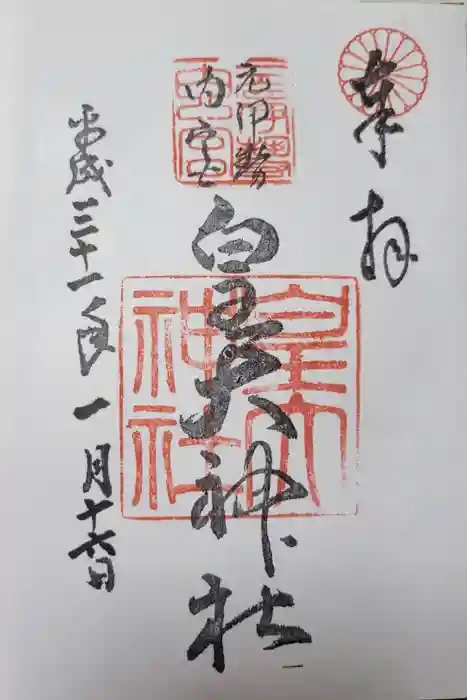 奉拝
元伊勢
内宮
皇大神社
皇大
神社
平成三十一年一月十六日